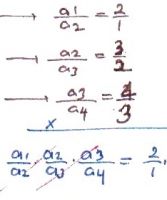 → a1/a2 = 2/1
→ a2/a3 = 3/2
→ a3/a4 = 4/3
×
a1/a2 · a2/a3 · a3/a4 = 2/1 ·